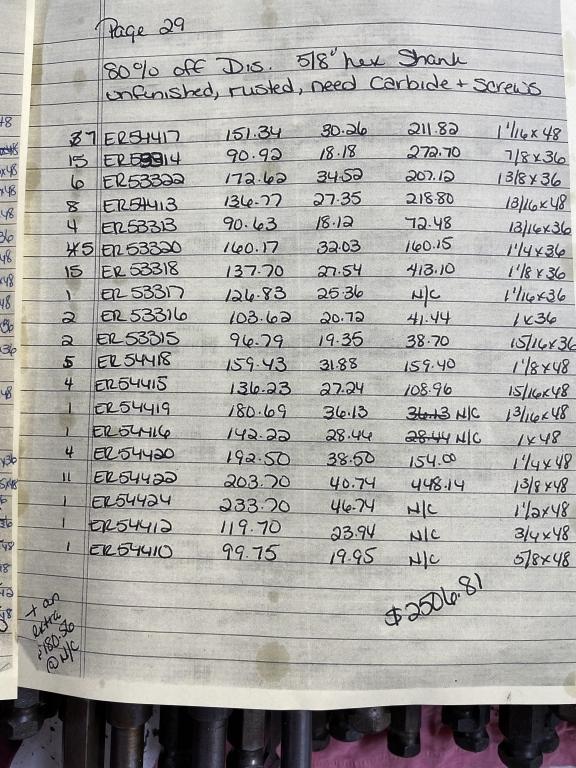 Page 29
80% off Dis. 5/8" hex Shank
unfinished, rusted, need Carbide + Screws
7 ER54417 151.34 30.26 211.82 1 1/16 x 48
15 ER53314 90.92 18.18 272.70 7/8 x 36
6 ER53322 172.62 34.52 207.12 1 3/8 x 36
8 ER54413 136.77 27.35 218.80 13/16 x 48
4 ER53313 90.63 18.12 72.48 13/16 x 36
5 ER53320 160.17 32.03 160.15 1 1/4 x 36
15 ER53318 137.70 27.54 413.10 1 1/8 x 36
1 ER53317 126.83 25.36 N/C 1 1/16 x 36
2 ER53316 103.62 20.72 41.44 1 x 36
2 ER53315 96.79 19.35 38.70 15/16 x 36
5 ER54418 159.43 31.88 159.40 1 1/8 x 48
4 ER54415 136.23 27.24 108.96 15/16 x 48
1 ER54419 180.69 36.13 36.13 N/C 1 3/16 x 48
1 ER54416 142.22 28.44 28.44 N/C 1 x 48
4 ER54420 192.50 38.50 154.00 1 1/4 x 48
11 ER54422 203.70 40.74 448.14 1 3/8 x 48
1 ER54424 233.70 46.74 N/C 1 1/2 x 48
1 ER54412 119.70 23.94 N/C 3/4 x 48
1 ER54410 99.75 19.95 N/C 5/8 x 48
$2506.81
+ an
extra
$180.56
@ N/C